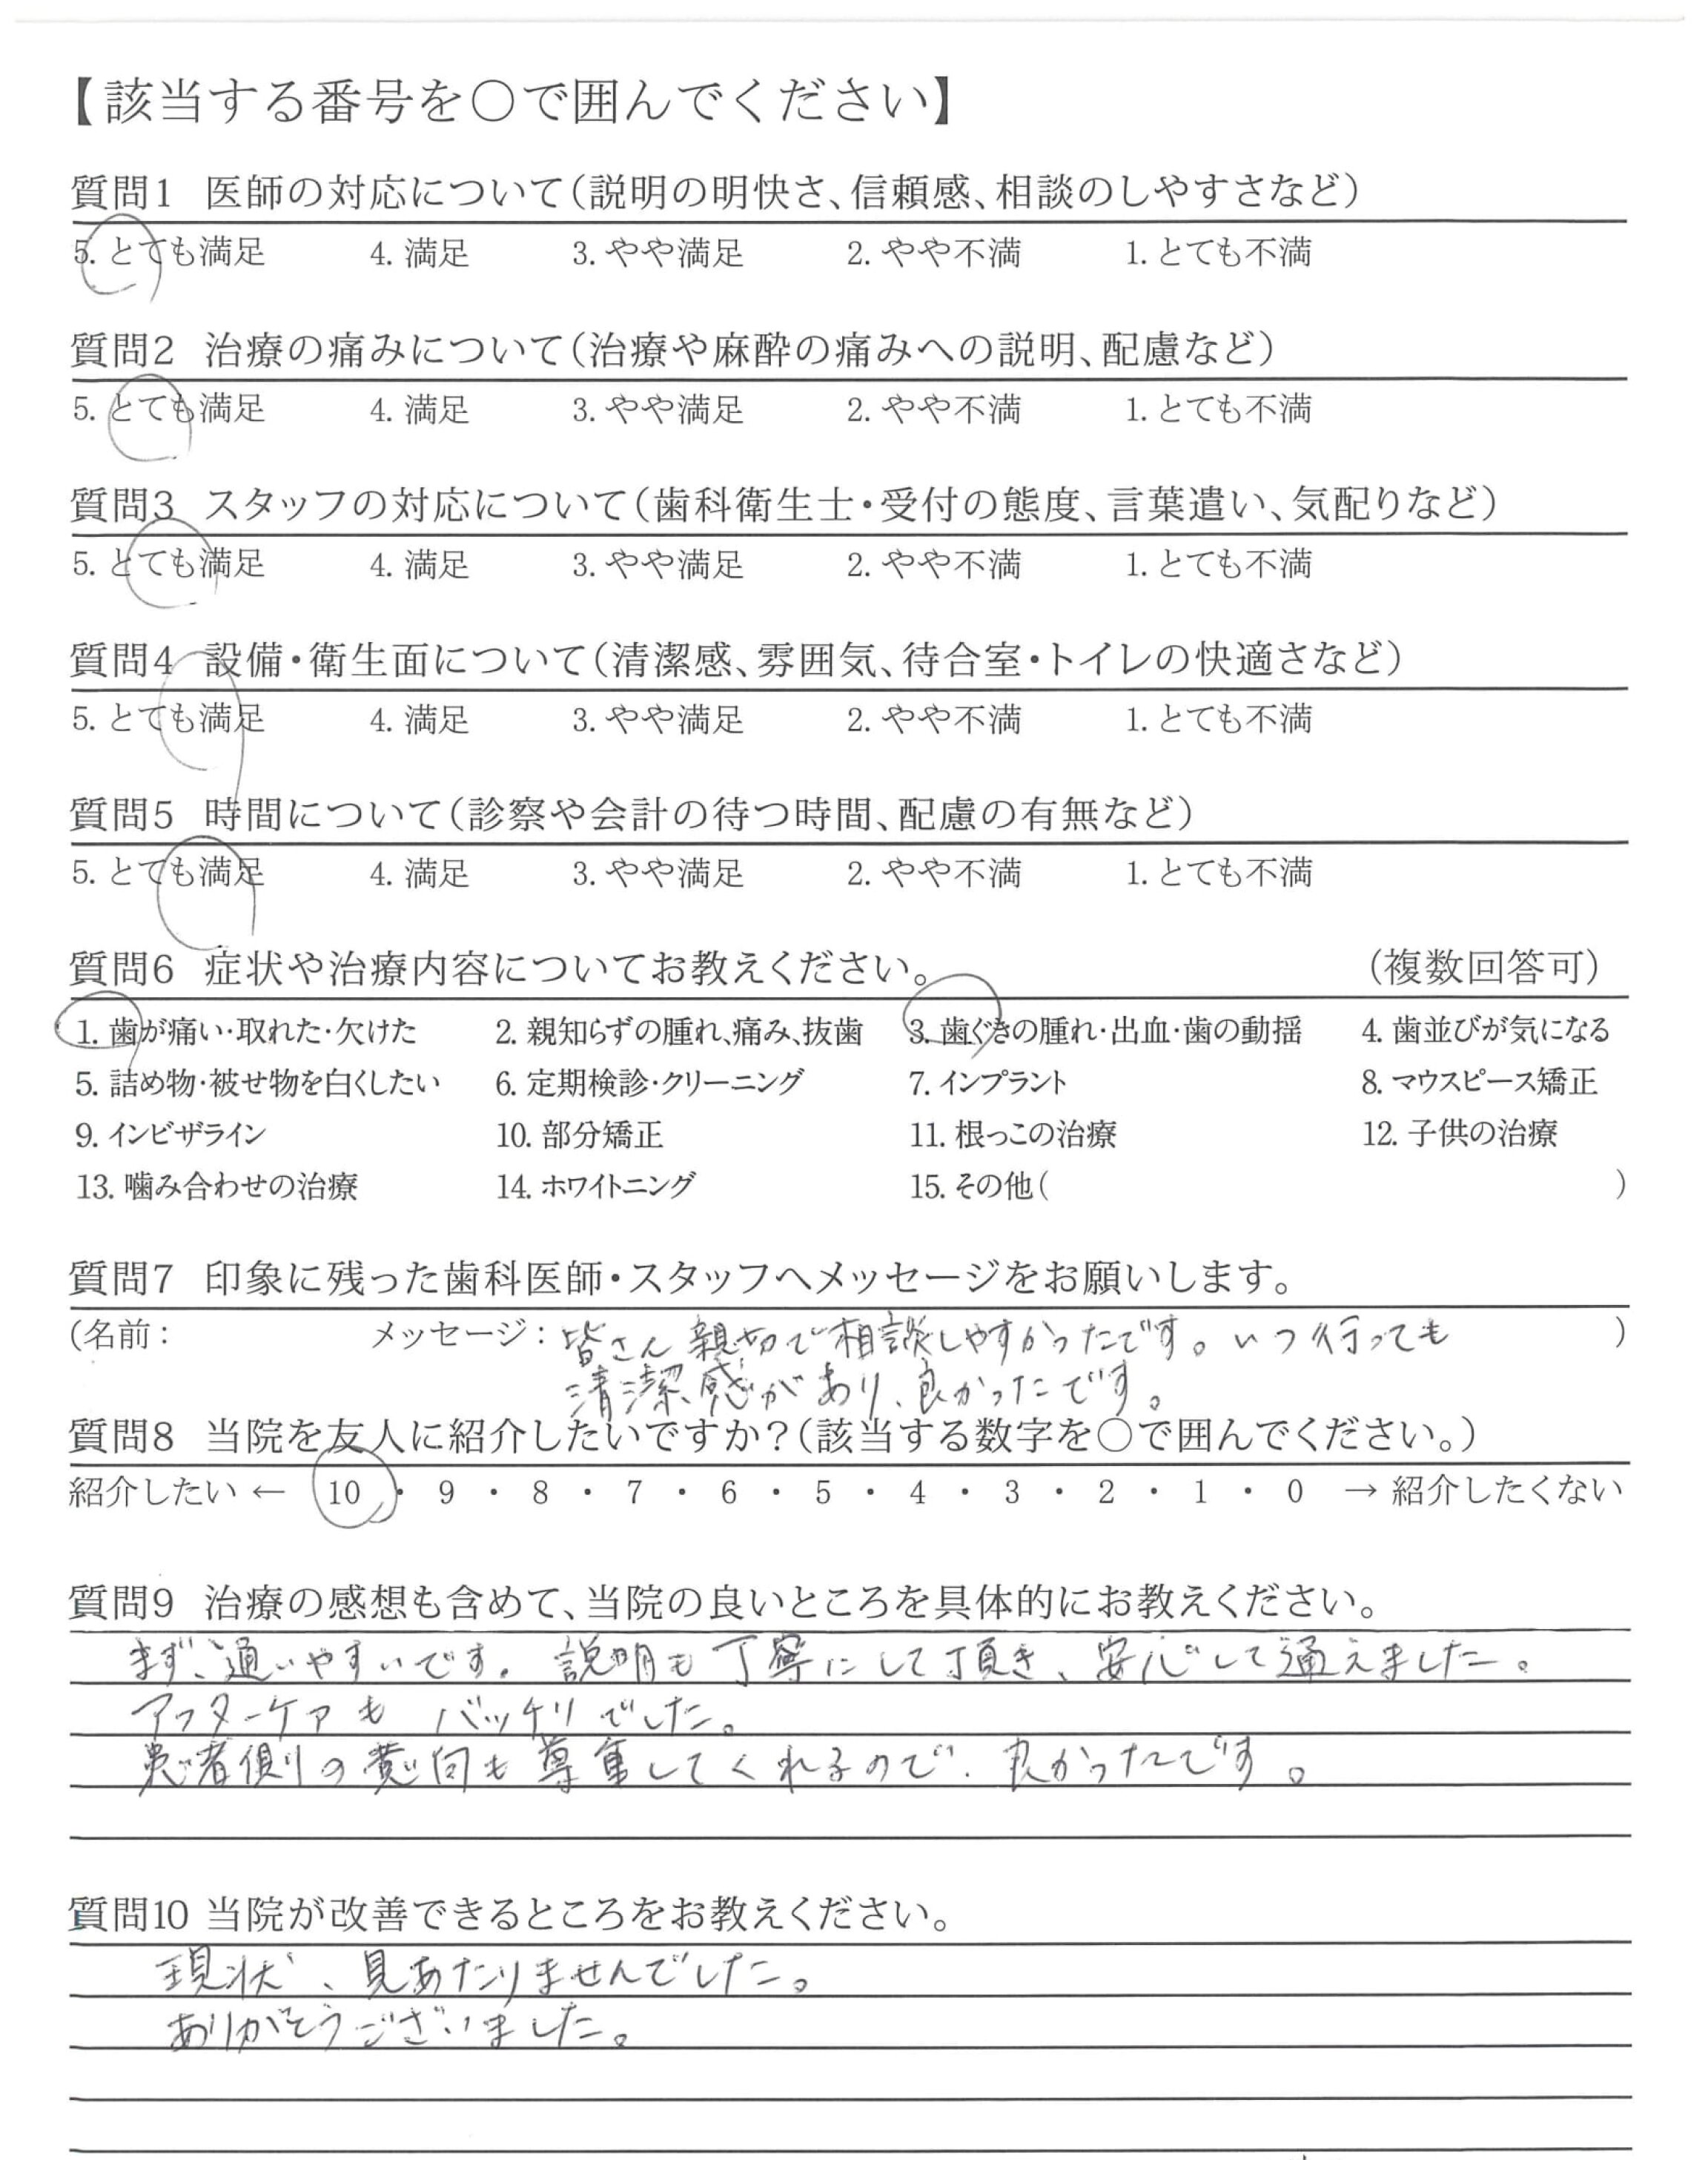 【該当する番号を○で囲んでください】
質問1 医師の対応について（説明の明快さ、信頼感、相談のしやすさなど）
5. とても満足 4. 満足 3. やや満足 2. やや不満 1. とても不満
質問2 治療の痛みについて（治療や麻酔の痛みへの説明、配慮など）
5. とても満足 4. 満足 3. やや満足 2. やや不満 1. とても不満
質問3 スタッフの対応について（歯科衛生士・受付の態度、言葉遣い、気配りなど）
5. とても満足 4. 満足 3. やや満足 2. やや不満 1. とても不満
質問4 設備・衛生面について（清潔感、雰囲気、待合室・トイレの快適さなど）
5. とても満足 4. 満足 3. やや満足 2. やや不満 1. とても不満
質問5 時間について（診察や会計の待つ時間、配慮の有無など）
5. とても満足 4. 満足 3. やや満足 2. やや不満 1. とても不満
質問6 症状や治療内容についてお教えください。 （複数回答可）
1. 歯が痛い・取れた・欠けた 2. 親知らずの腫れ、痛み、抜歯 3. 歯ぐきの腫れ・出血・歯の動揺 4. 歯並びが気になる
5. 詰め物・被せ物を白くしたい 6. 定期検診・クリーニング 7. インプラント 8. マウスピース矯正
9. インビザライン 10. 部分矯正 11. 根っこの治療 12. 子供の治療
13. 噛み合わせの治療 14. ホワイトニング 15. その他（ ）
質問7 印象に残った歯科医師・スタッフへメッセージをお願いします。
（名前： メッセージ：皆さん親切で相談しやすかったです。いつ行っても ）
清潔感があり、良かったです。
質問8 当院を友人に紹介したいですか？（該当する数字を○で囲んでください。）
紹介したい ← 10 ・ 9 ・ 8 ・ 7 ・ 6 ・ 5 ・ 4 ・ 3 ・ 2 ・ 1 ・ 0 → 紹介したくない
質問9 治療の感想も含めて、当院の良いところを具体的にお教えください。
まず、通いやすいです。説明も丁寧にして頂き、安心して通えました。
アフターケアも バッチリでした。
患者側の意向も尊重してくれるので、良かったです。
質問10 当院が改善できるところをお教えください。
現状、見あたりませんでした。
ありがとうございました。